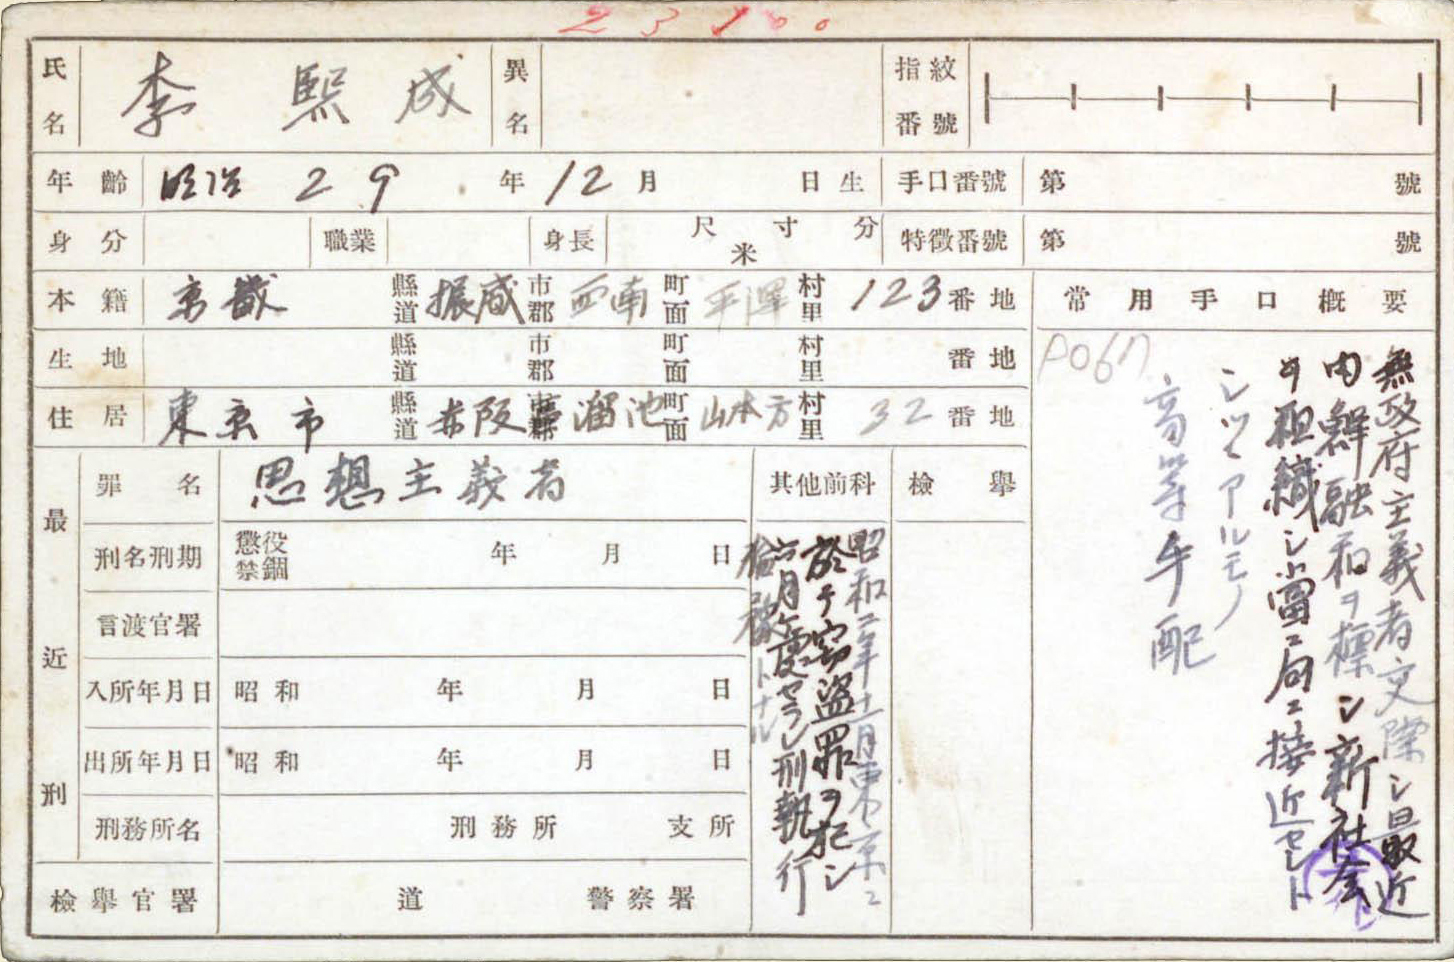 23100
氏名 李熙成 異名 指紋番號
年齡 明治29年12月 日生 手口番號 第 號
身分 職業 身長 尺寸分 米 特徵番號 第 號
本籍 京畿 縣道 振威 市郡 西南 町面 平澤 村里 123 番地 常用手口槪要
生地 縣道 市郡 町面 村里 番地
住居 東京市 縣道 赤阪 市郡 溜池 町面 山本方 村里 32 番地
最近刑
罪名 思想主義者 其他前科 檢擧
刑名刑期 懲役 禁錮 年 月 日
言渡官署
入所年月日 昭和 年 月 日
出所年月日 昭和 年 月 日
刑務所名 刑務所 支所
檢擧官署 道 警察署
昭和二年十一月東京ニ
於テ窃盜罪ヲ犯シ
六月ニ處セラレ刑執行
猶豫トナル
無政府主義者交際シ最近
內鮮融和ヲ標シ新社會
ヲ組織シ當局ニ接近セント
シツツアルモノ
高等手配